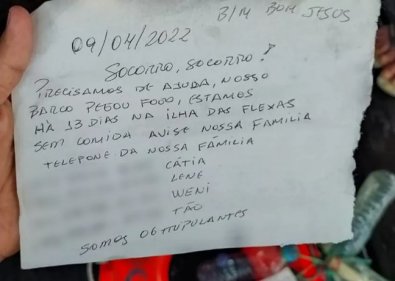 B/M BOM JESUS
09/04/2022
SOCORRO, SOCORRO!
PRECISAMOS DE AJUDA, NOSSO
BARCO PEGOU FOGO, ESTAMOS
HÁ 13 DIAS NA ILHA DAS FLEXAS
SEM COMIDA AVISE NOSSA FAMILIA
TELEFONE DA NOSSA FAMILIA
CÁTIA
LENE
WENI
TÃO
SOMOS 06 TRIPULANTES